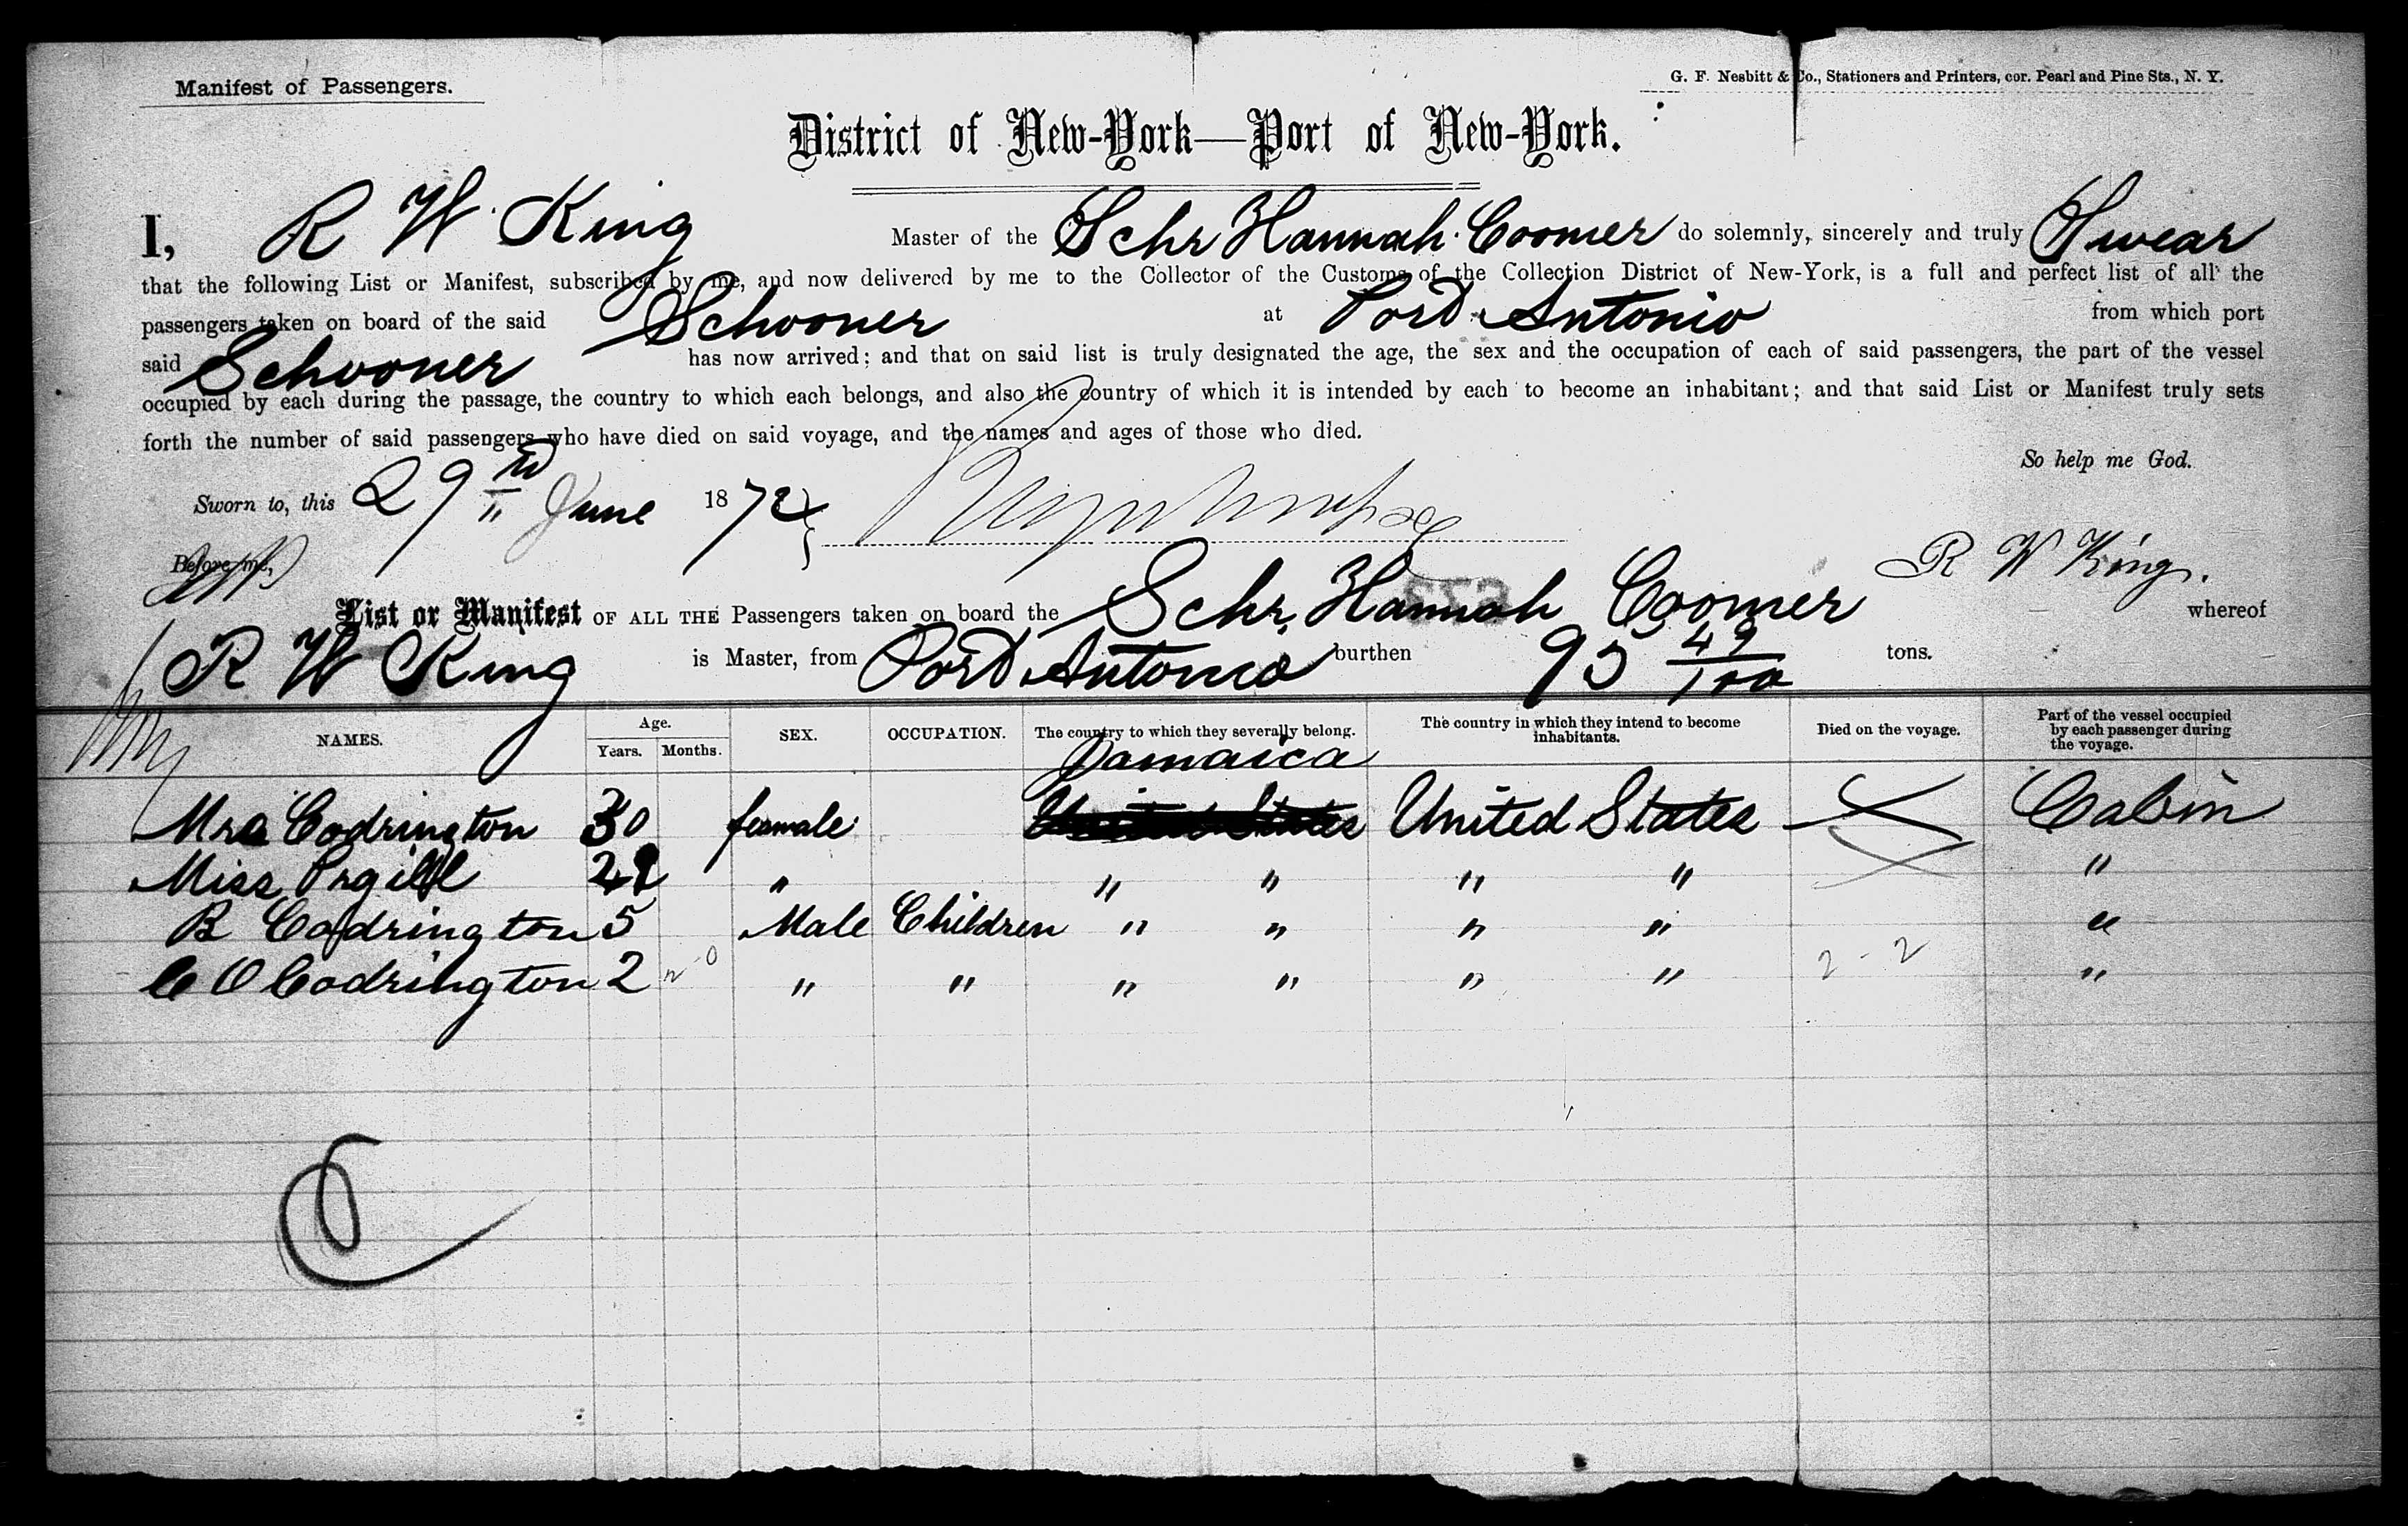 Manifest of Passengers.
G. F. Nesbitt & Co., Stationers and Printers, cor. Pearl and Pine Sts., N. Y.
District of New-York—Port of New-York.
I, R W King Master of the Schr Hannah Coomer do solemnly, sincerely and truly Swear
that the following List or Manifest, subscribed by me, and now delivered by me to the Collector of the Customs of the Collection District of New-York, is a full and perfect list of all the
passengers taken on board of the said Schooner at Port Antonio from which port
said Schooner has now arrived; and that on said list is truly designated the age, the sex and the occupation of each of said passengers, the part of the vessel
occupied by each during the passage, the country to which each belongs, and also the country of which it is intended by each to become an inhabitant; and that said List or Manifest truly sets
forth the number of said passengers who have died on said voyage, and the names and ages of those who died.
So help me God.
Sworn to, this 29th June 1872
Before me,
R W King.
List or Manifest OF ALL THE Passengers taken on board the Schr. Hannah Coomer whereof
R W King is Master, from Port Antonio burthen 95 49/100 tons.
NAMES. Age. Years. Months. SEX. OCCUPATION. The country to which they severally belong. The country in which they intend to become inhabitants. Died on the voyage. Part of the vessel occupied by each passenger during the voyage.
Jamaica
Mrs Codrington 30 female United States United States Cabin
Miss 2 " " " " " "
B Codrington 5 Male Children " " " " "
C O Codrington 2 " " " " " " "
2 - 2